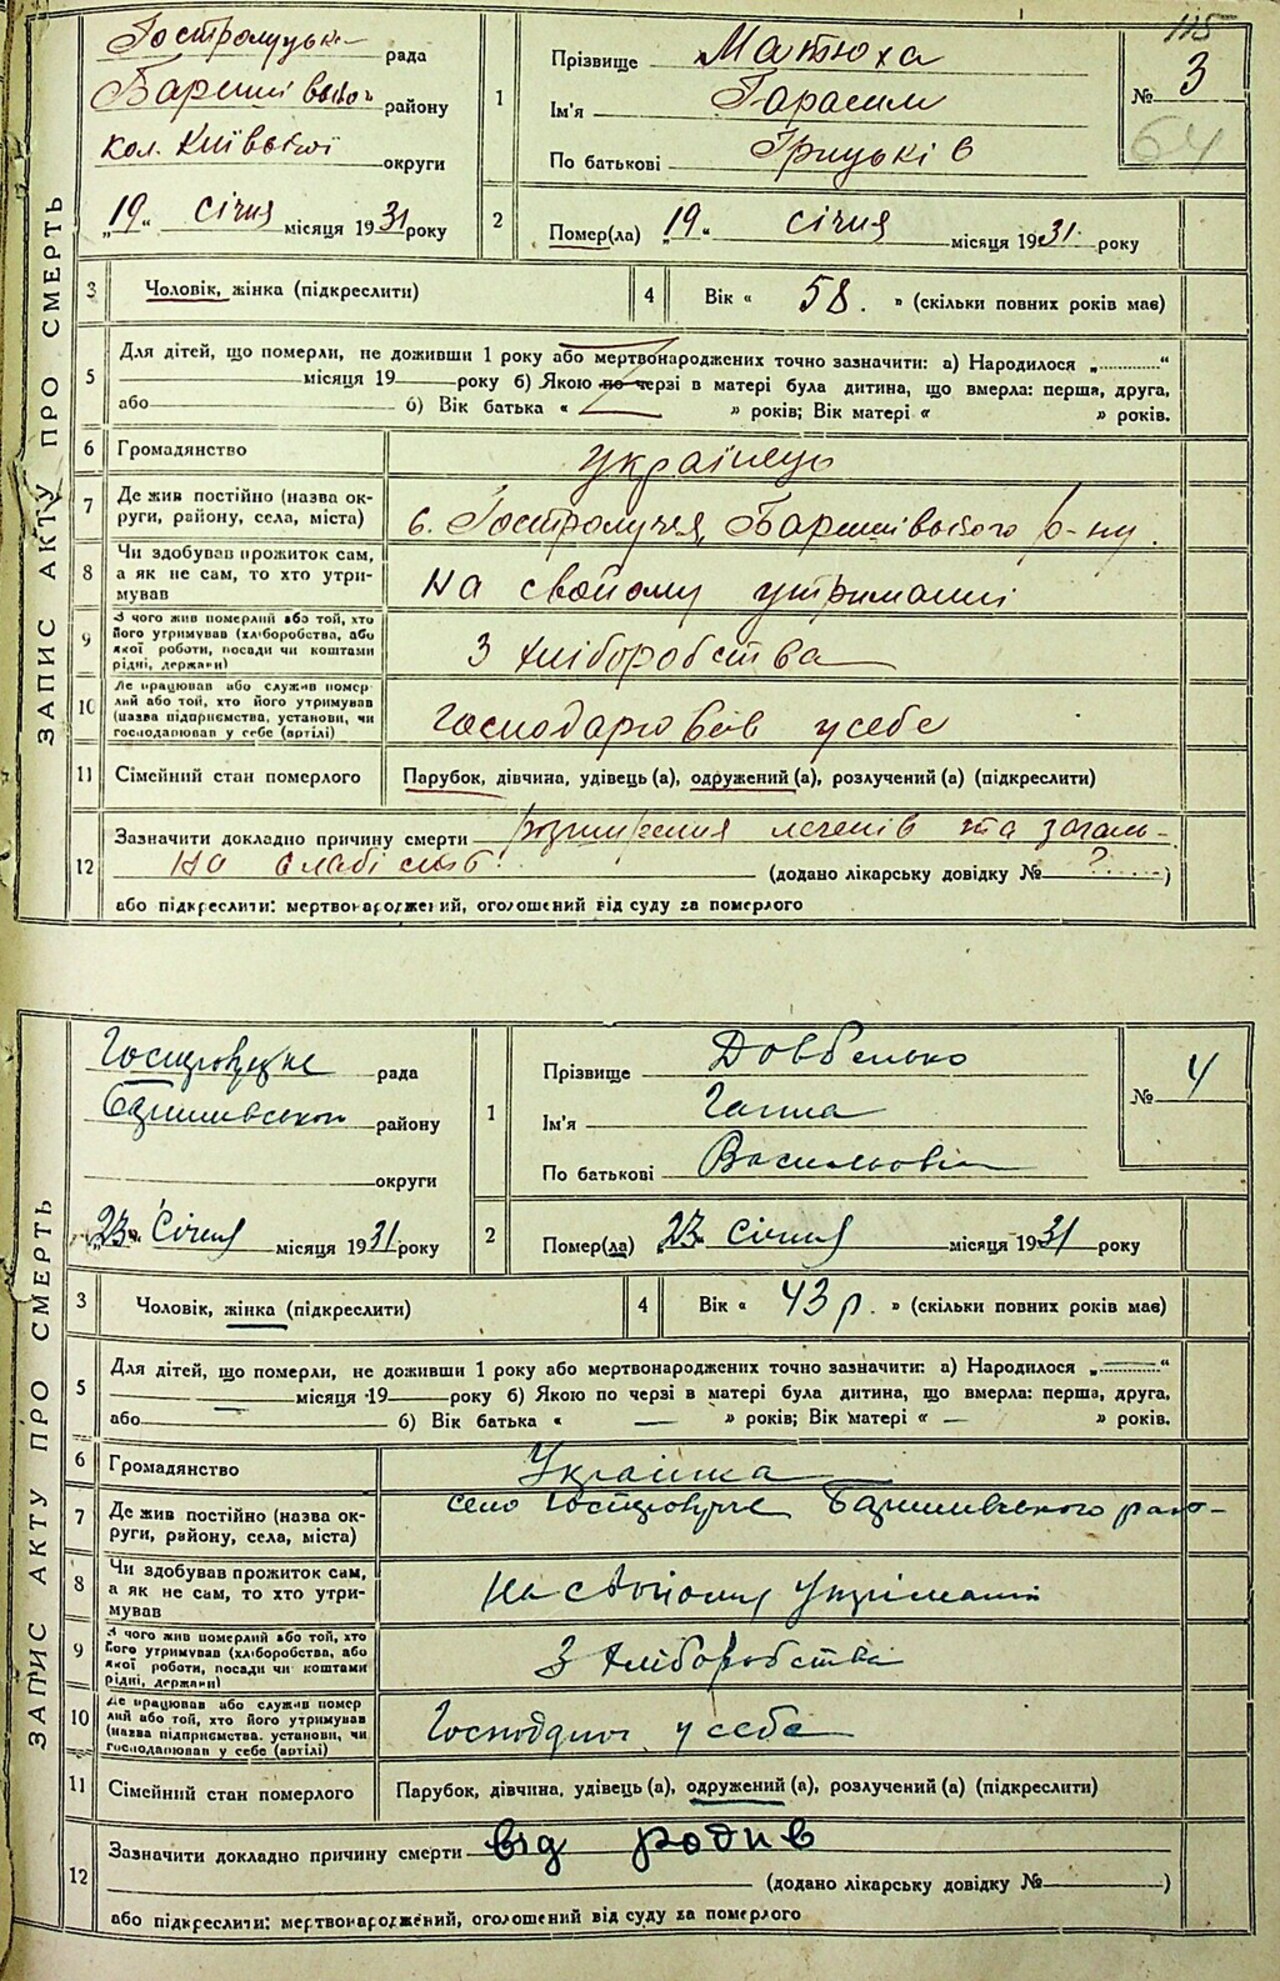 115
Гостролуцьке рада
Баришівського району
кол. Київської округи
„19“ січня місяця 1931 року
1
Прізвище Матюха
Ім'я Гарасим
По батькові Грицьків
№ 3
64
2
Помер(ла) „19“ січня місяця 1931. року
ЗАПИС АКТУ ПРО СМЕРТЬ
3 Чоловік, жінка (підкреслити)
4 Вік « 58. » (скільки повних років має)
5 Для дітей, що померли, не доживши 1 року або мертвонароджених точно зазначити: а) Народилося „ “
місяця 19 року б) Якою по черзі в матері була дитина, що вмерла: перша, друга,
або б) Вік батька « » років; Вік матері « » років.
6 Громадянство українець
7 Де жив постійно (назва ок-
руги, району, села, міста) с. Гостролуччя, Баришівського р-ну.
8 Чи здобував прожиток сам,
а як не сам, то хто утри-
мував На свойому утриманні
9 З чого жив померлий або той, хто
його утримував (хліборобства, або
якої роботи, посади чи коштами
рідні, держави) З хліборобства
10 Де працював або служив помер
лий або той, хто його утримував
(назва підприємства, установи, чи
господарював у себе (артілі) Господарював у себе
11 Сімейний стан померлого Парубок, дівчина, удівець (а), одружений (а), розлучений (а) (підкреслити)
12 Зазначити докладно причину смерти розширення легенів та загаль-
на слабість. (додано лікарську довідку № ? )
або підкреслити: мертвонароджений, оголошений від суду за померлого
рада
Баришівського району
округи
„23“ Січня місяця 1931 року
1
Прізвище Довбенько
Ім'я Ганна
По батькові Васильовна
№ 4
2
Помер(ла) „23“ Січня місяця 1931 року
ЗАПИС АКТУ ПРО СМЕРТЬ
3 Чоловік, жінка (підкреслити)
4 Вік « 43 р. » (скільки повних років має)
5 Для дітей, що померли, не доживши 1 року або мертвонароджених точно зазначити: а) Народилося „ “
місяця 19 року б) Якою по черзі в матері була дитина, що вмерла: перша, друга,
або б) Вік батька « — » років; Вік матері « — » років.
6 Громадянство Українка
7 Де жив постійно (назва ок-
руги, району, села, міста) село Гостролуччя Баришівського райо-
8 Чи здобував прожиток сам,
а як не сам, то хто утри-
мував На свойому утриманні
9 З чого жив померлий або той, хто
його утримував (хліборобства, або
якої роботи, посади чи коштами
рідні, держави) З хліборобства
10 Де працював або служив помер
лий або той, хто його утримував
(назва підприємства, установи, чи
господарював у себе (артілі) у себе
11 Сімейний стан померлого Парубок, дівчина, удівець (а), одружений (а), розлучений (а) (підкреслити)
12 Зазначити докладно причину смерти від родив
(додано лікарську довідку № )
або підкреслити: мертвонароджений, оголошений від суду за померлого